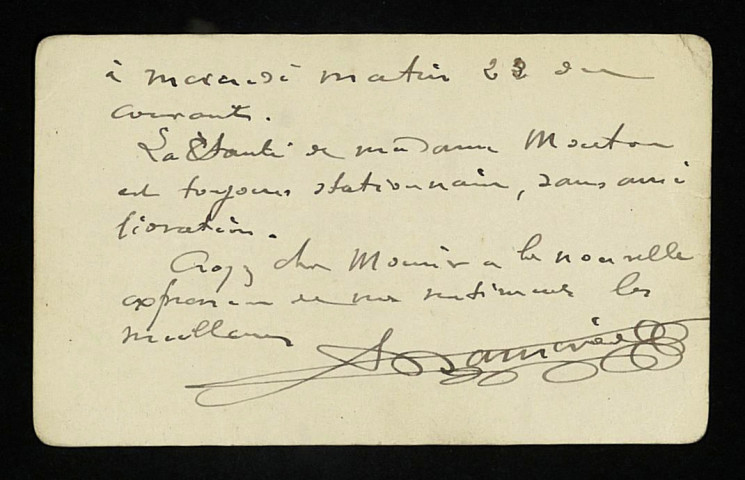 à mercredi matin 23 du
courant.
La Santé de madame Mouton
est toujours stationnaire, sans amé
lioration.
Croyez cher Monsieur a la nouvelle
expression de mes sentiments les
meilleurs